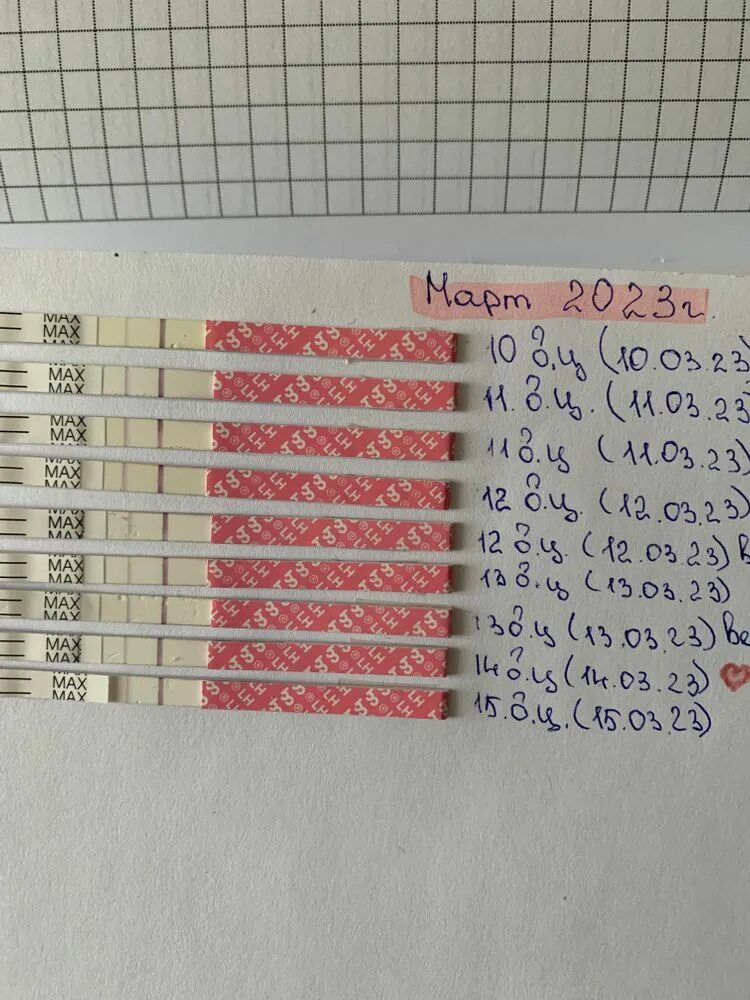 Март 2023г.
MAX
MAX
10 д.ц (10.03.23
MAX
MAX
11. д.ц. (11.03.23
MAX
MAX
11 д.ц (11.03.23)
MAX
MAX
12 д.ц. (12.03.23)
MAX
MAX
12 д.ц. (12.03.23) в
MAX
MAX
13 д.ц (13.03.23)
MAX
MAX
13 д.ц (13.03.23) ве
MAX
MAX
14 д.ц (14.03.23)
MAX
MAX
15. д.ц. (15.03.23)